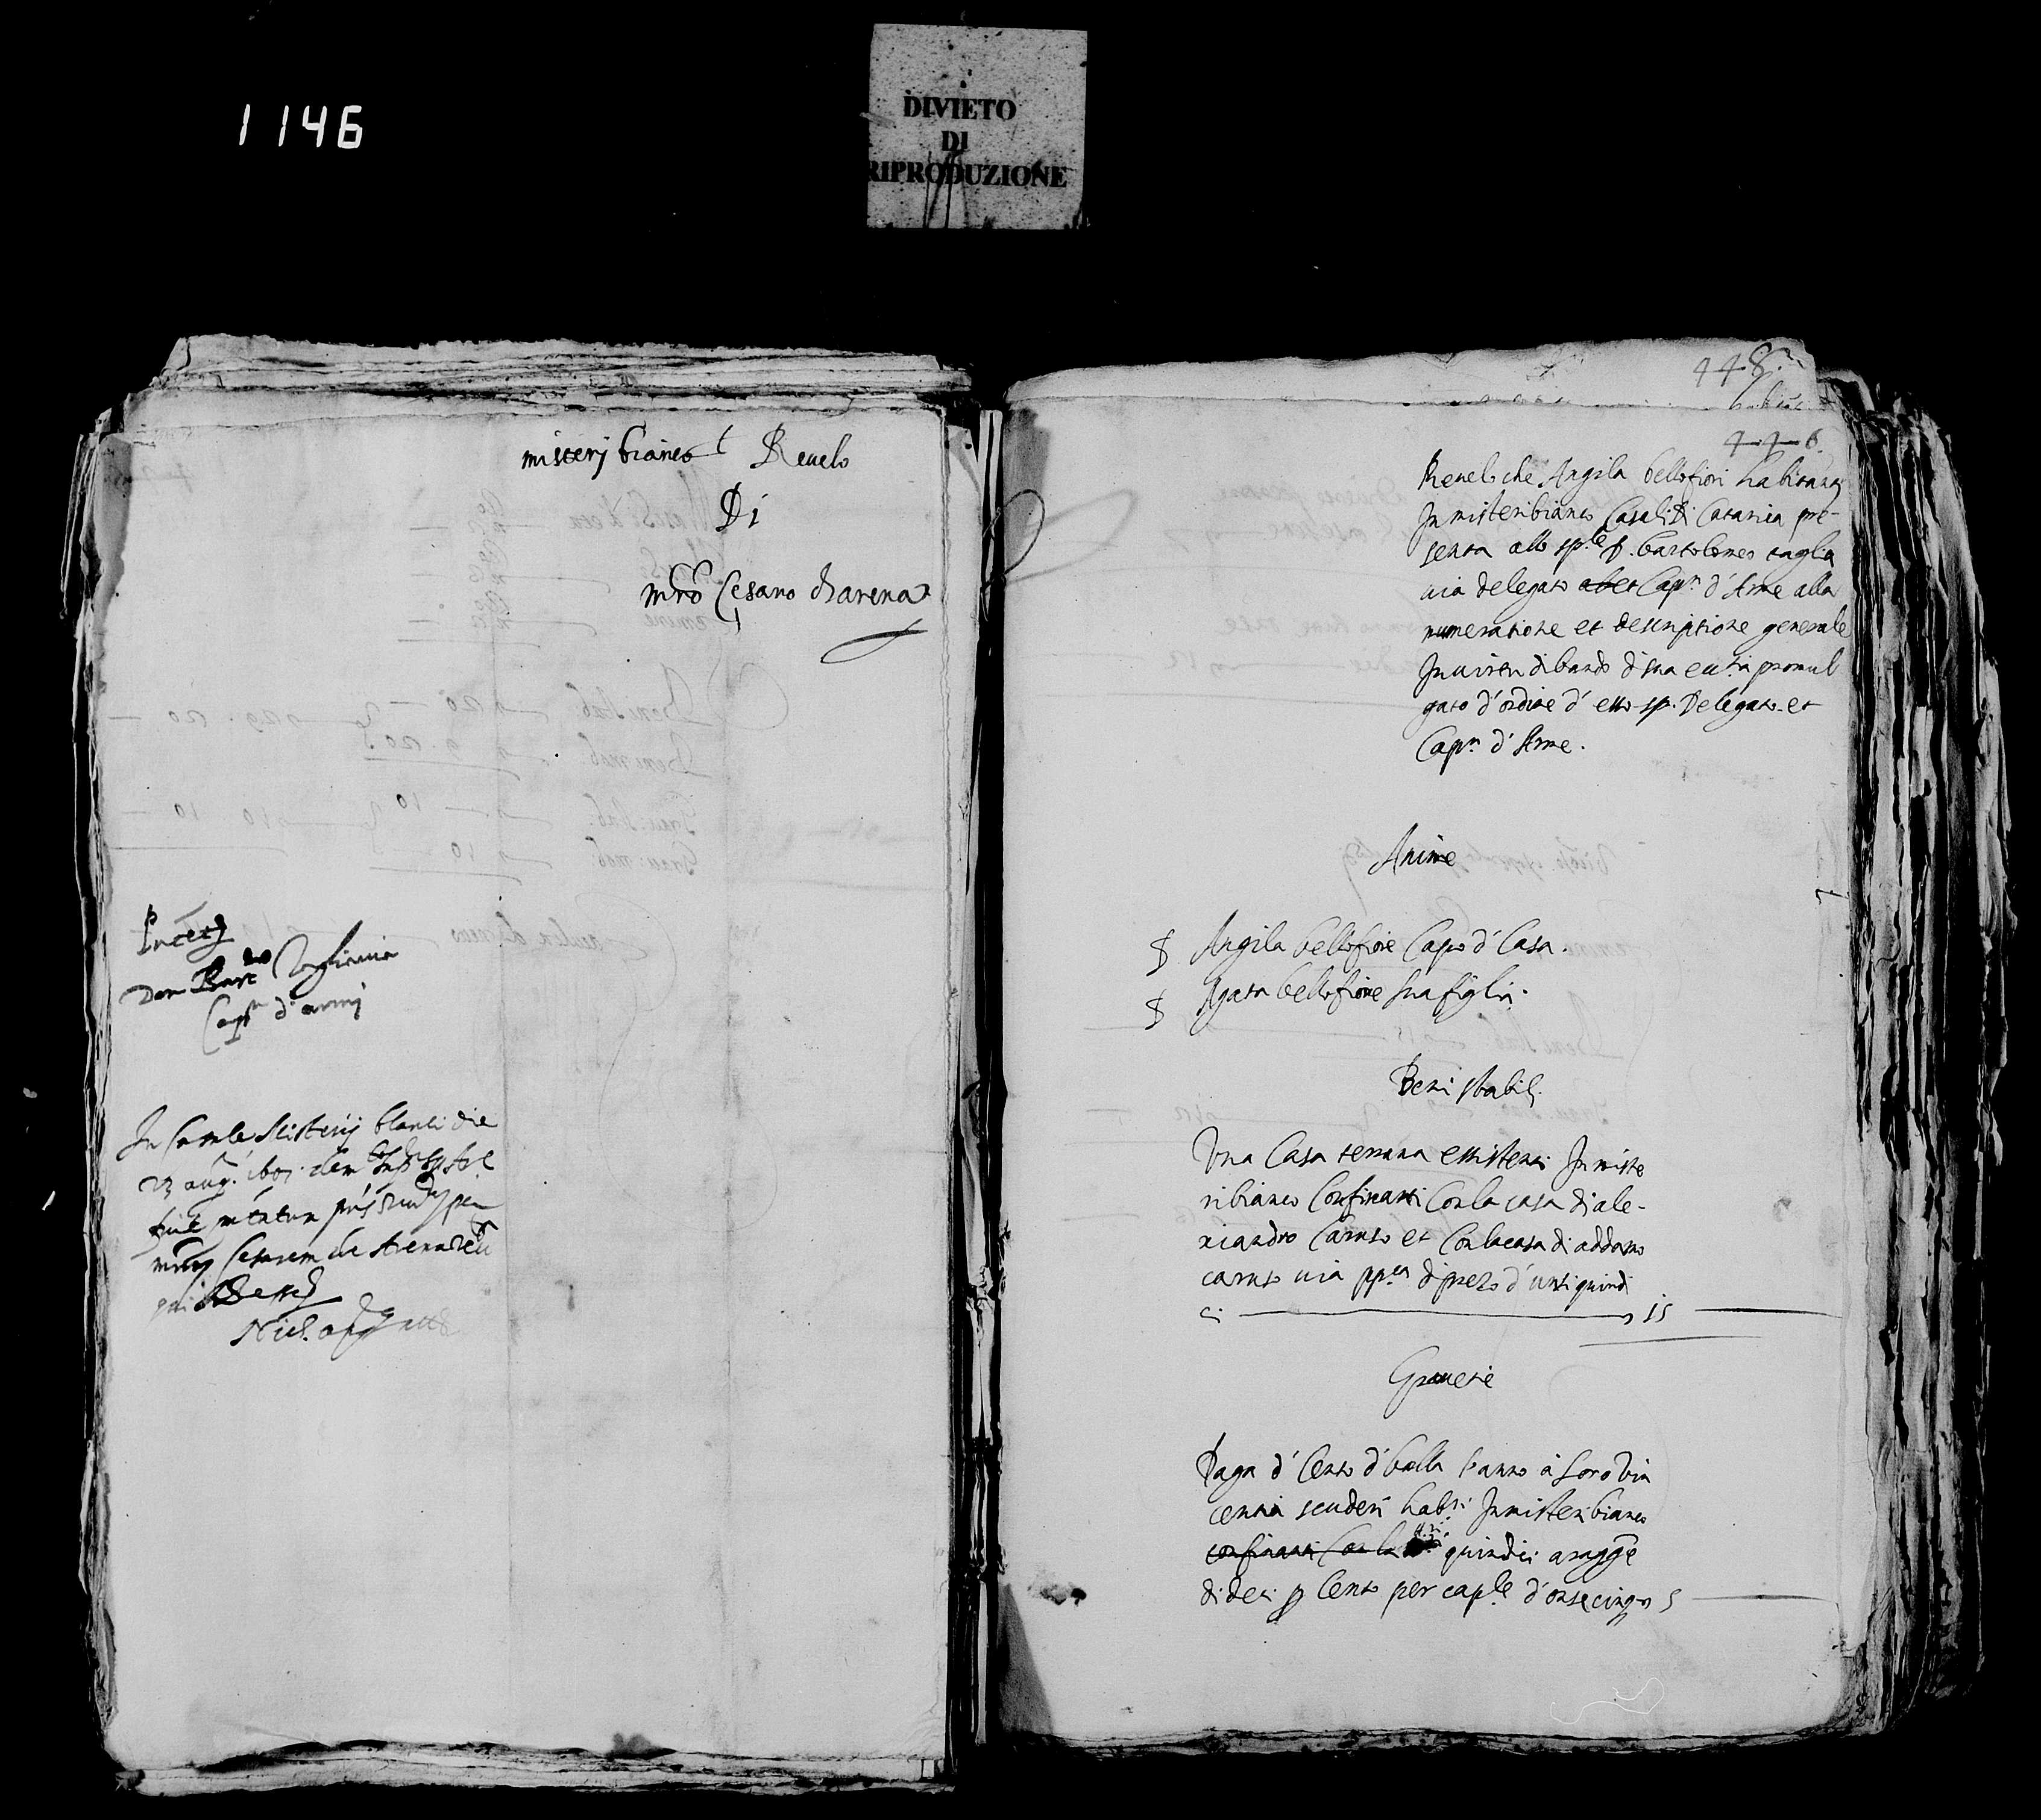 1146
DIVIETO
DI
RIPRODUZIONE
misterj bianco Revelo
Di
mro Cesaro d'arena
Don Bart.eo Taglavia
Cap.n d'armj
In Casale Misterij blanci die
23 aug.
Cesarem de Arena
448
446
Revelo che Angila bellofiori habitanti
In misteribianco Casali Di Catania pre-
senta allo sp.le D. Bartolomeo taglia
via delegato et Cap.n d'Arme alla
numeratione et descriptione generale
In virtu di bando di sua ecc.tia promul
gato d'ordine d'esso sp. Delegato et
Cap.n d'Arme.
Anime
Angila bellofiore Capo d'Casa.
Agata bellofiore sua figlia.
Beni stabili
Una Casa terrana existenti In miste
ribianco Confinanti Con la casa di ale-
xiandro Caruso et Con la casa di addamo
caruso via pp.ca di prezo d'unti quindi
ci 15
Gravezie
Paga d'Censo d'bolla l'anno à Soro Vin
cenzia scuderi hab.ti In misteribianco
confinanti Con la tt.ri quindici a ragg.e
di deci p Cento per cap.le d'onse cinq.o 5